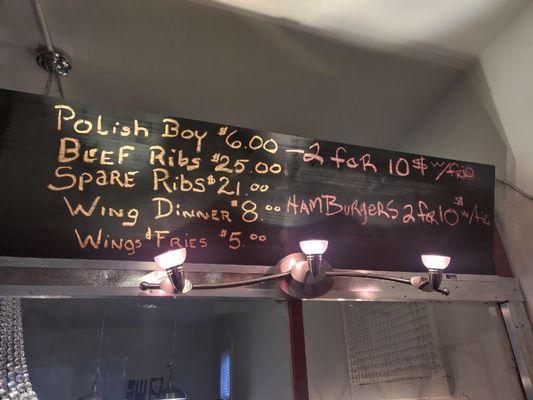 Polish Boy $6.00 - 2 for 10$ w/frie
BEEF Ribs $25.00
Spare Ribs $21.00
Wing Dinner $8.00 HAMBURGERS 2 for 10$ w/frie
Wings & Fries $5.00